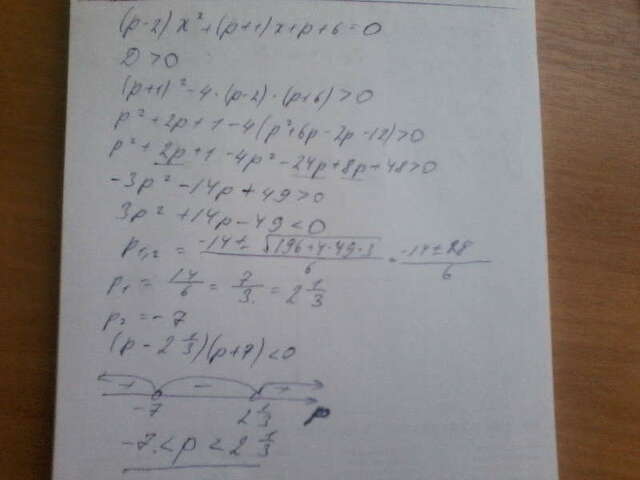 (p-2)x²+(p+1)x+p+6=0
D>0
(p+1)²-4·(p-2)·(p+6)>0
p²+2p+1-4(p²+6p-2p-12)>0
p²+2p+1-4p²-24p+8p+48>0
-3p²-14p+49>0
3p²+14p-49<0
p₁,₂ = (-14±√(196+4·49·3))/6 = (-14±28)/6
p₁ = 14/6 = 7/3 = 2 1/3
p₂ = -7
(p-2 1/3)(p+7)<0
+ - +
-7 2 1/3 p
-7<p<2 1/3